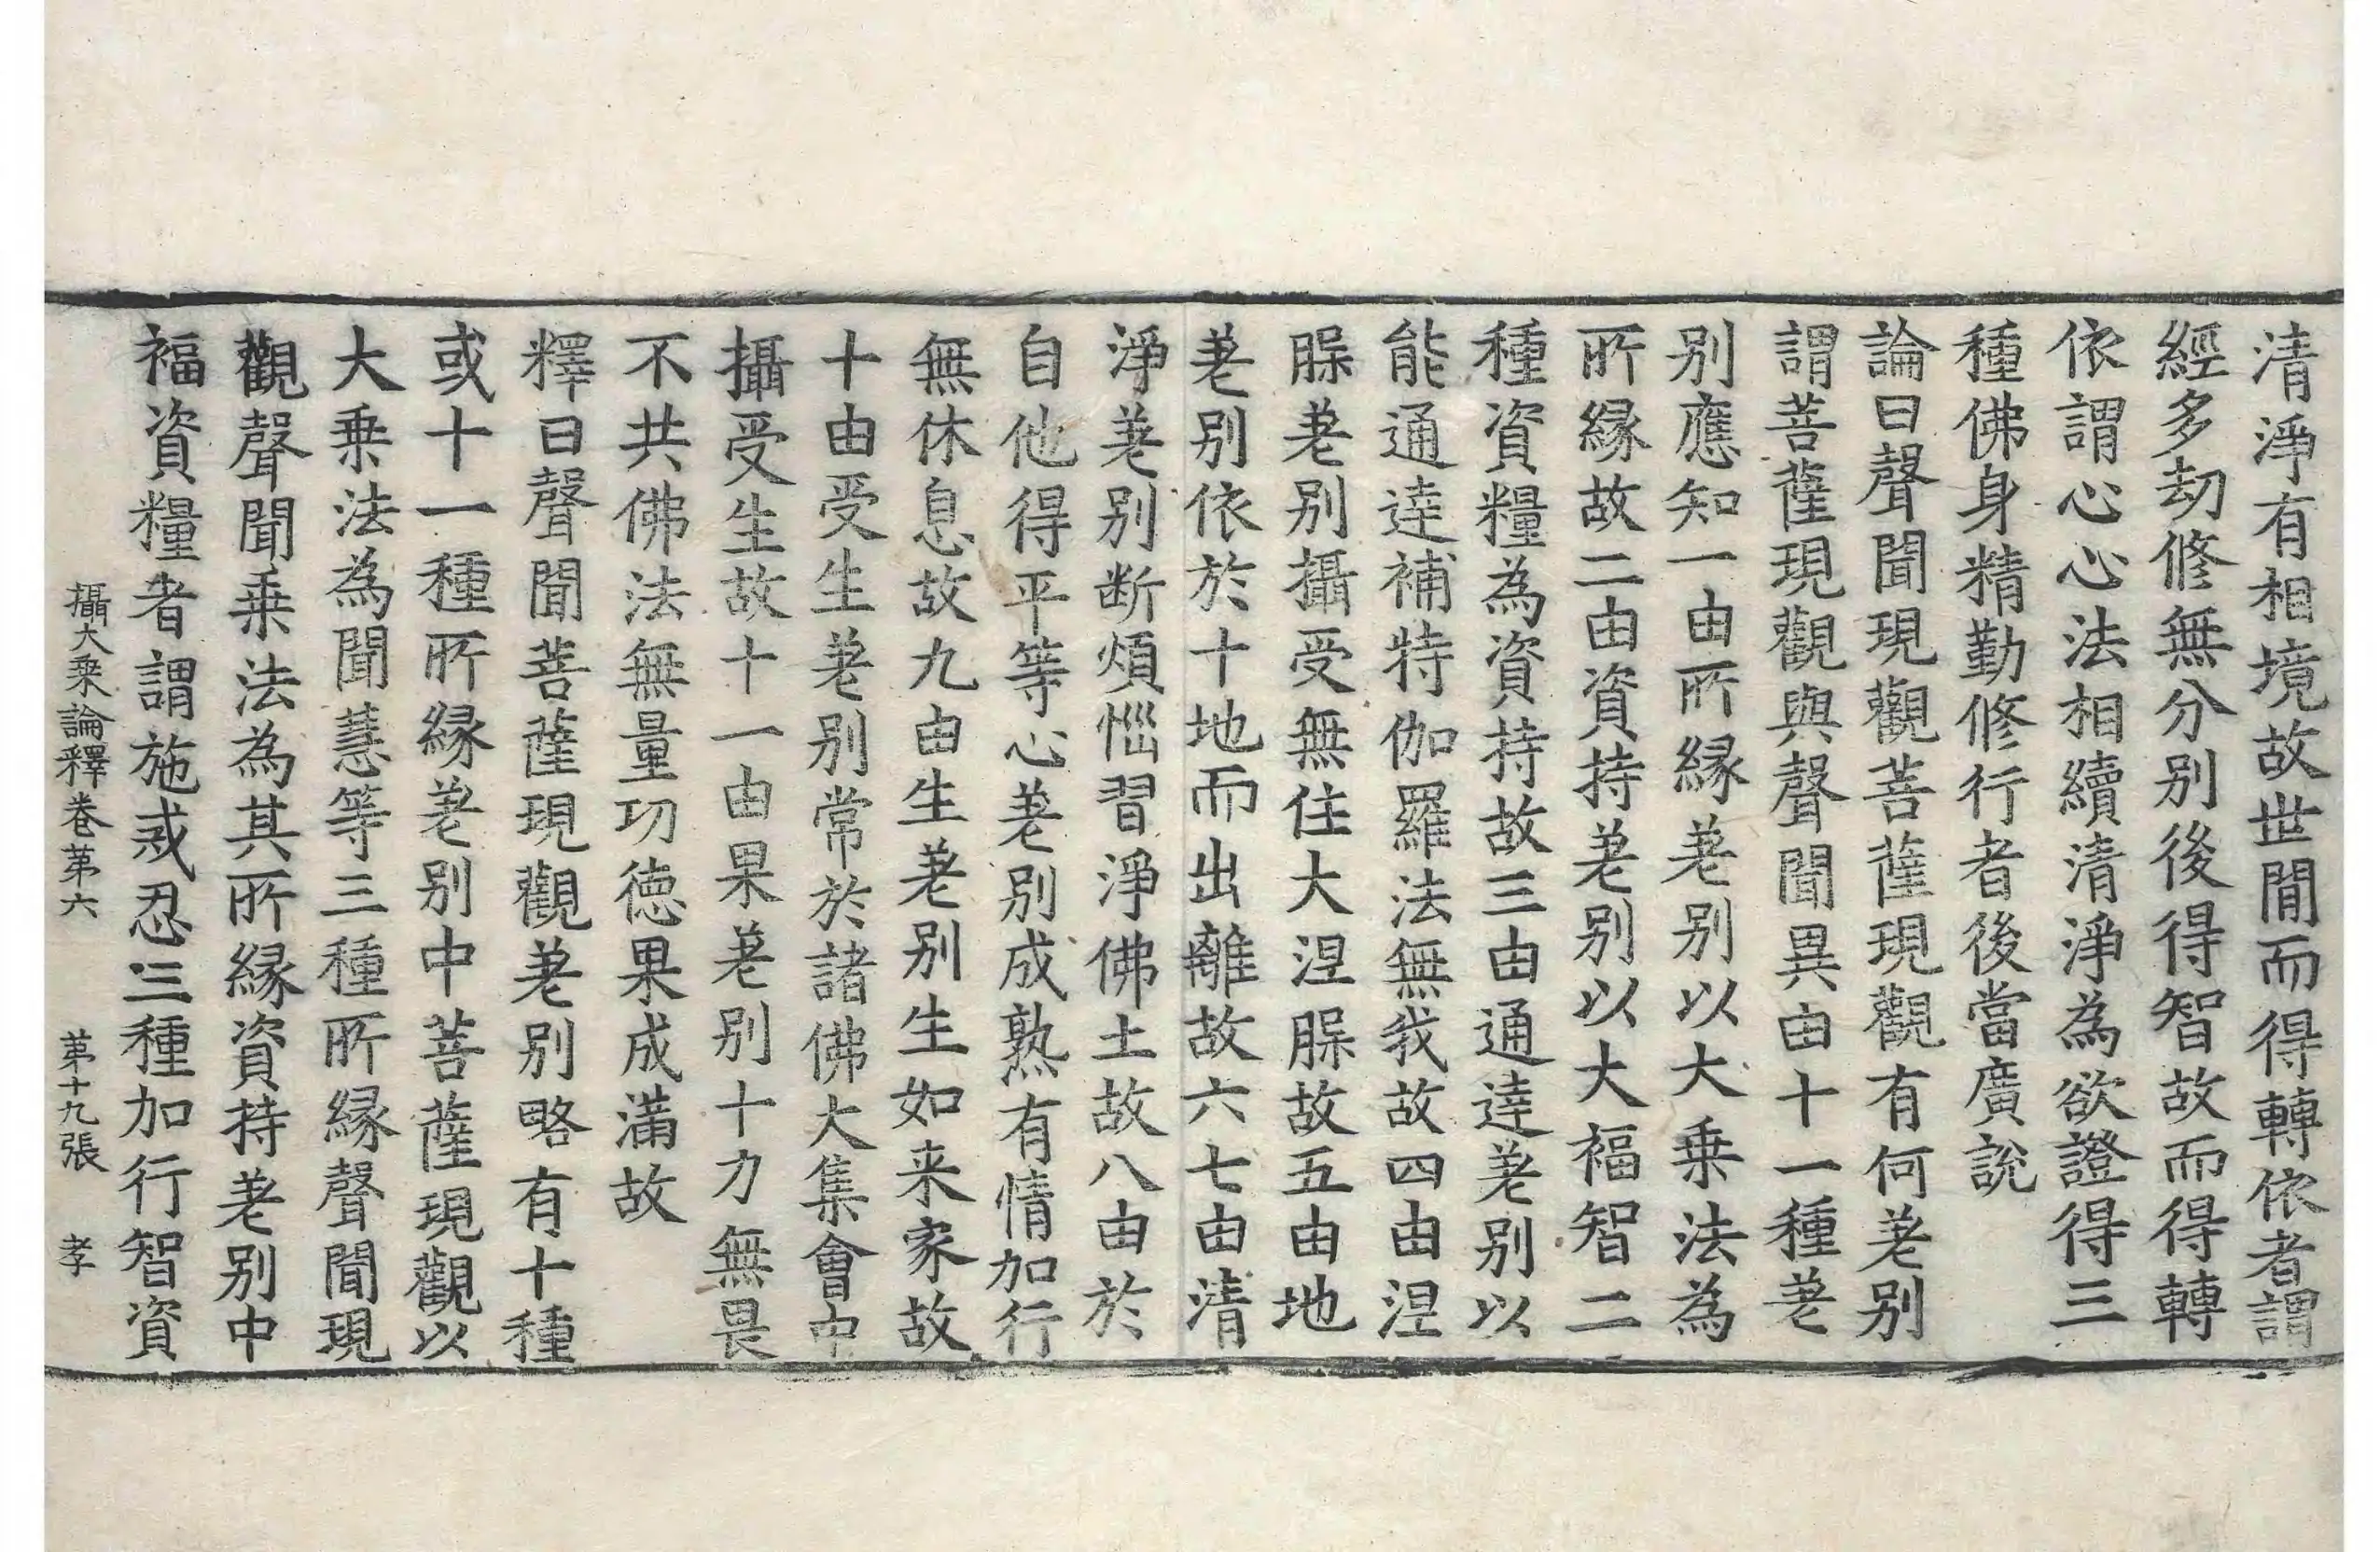 清淨有相境故世間而得轉依者謂
經多劫修無分別後得智故而得轉
依謂心心法相續清淨為欲證得三
種佛身精勤修行者後當廣說
論曰聲聞現觀菩薩現觀有何差別
謂菩薩現觀與聲聞異由十一種差
別應知一由所緣差別以大乘法為
所緣故二由資持差別以大福智二
種資糧為資持故三由通達差別以
能通達補特伽羅法無我故四由涅
槃差別攝受無住大涅槃故五由地
差別依於十地而出離故六七由清
淨差別断煩惱習淨佛土故八由於
自他得平等心差別成熟有情加行
無休息故九由生差別生如来家故
十由受生差別常於諸佛大集會中
攝受生故十一由果差別十力無畏
不共佛法無量功德果成滿故
釋曰聲聞菩薩現觀差別略有十種
或十一種所緣差別中菩薩現觀以
大乘法為聞慧等三種所緣聲聞現
觀聲聞乘法為其所緣資持差別中
福資糧者謂施戒忍三種加行智資
攝大乘論釋卷第六 第十九張 孝